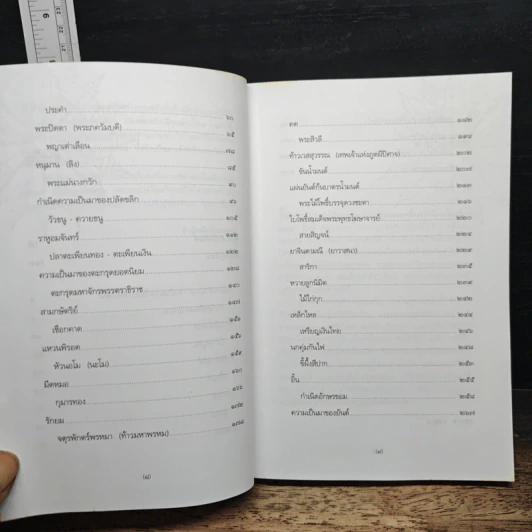 ประคำ ๖๐
พระปิดตา (พระภควัมบดี) ๖๕
พญาเต่าเลือน ๗๘
หนุมาน (ลิง) ๘๕
พระแม่นางกวัก
กำเนิดความเป็นมาของปลัดขลิก
วัวธนู - ควายธนู ๑๐๕
ราหูอมจันทร์ ๑๑๒
ปลาตะเพียนทอง - ตะเพียนเงิน ๑๒๒
ความเป็นมาของตะกรุดยอดนิยม ๑๒๘
ตะกรุดมหาจักรพรรดราธิราช ๑๔๐
สามกษัตริย์ ๑๔๗
เชือกคาด
แหวนพิรอด
หัวนอโม (นะโม) ๑๕๙
มีดหมอ ๑๖๐
กุมารทอง
รักยม ๑๗๒
จตุรพักตร์พรหมา (ท้าวมหาพรหม) ๑๗๘
(๘)
คต ๑๘๒
พระสิวลี ๑๙๘
ท้าวเวสสุวรรณ (เทพเจ้าแห่งภูตผีปีศาจ) ๒๐๒
ขันน้ำมนต์ ๒๐๗
แผ่นยันต์ก้นบาตรน้ำมนต์ ๒๑๓
พระไม้โพธิ์บรรจุดวงชะตา ๒๑๖
ใบโพธิ์สมเด็จพระพุทธโฆษาจารย์ ๒๒๐
สายสิญจน์ ๒๒๘
ยาจินดามณี (ยาวาสนา)
สาริกา ๒๓๕
หวายลูกนิมิต ๒๓๙
ไม้ไก่กุก ๒๔๒
เหล็กไหล ๒๔๔
เหรียญเงินไทย ๒๔๖
นกคุ่มกันไฟ ๒๔๘
ขี้ผึ้งสีปาก ๒๕๓
อิ้น ๒๕๕
กำเนิดอักษรขอม ๒๕๘
ความเป็นมาของยันต์ ๒๖๗
(๙)